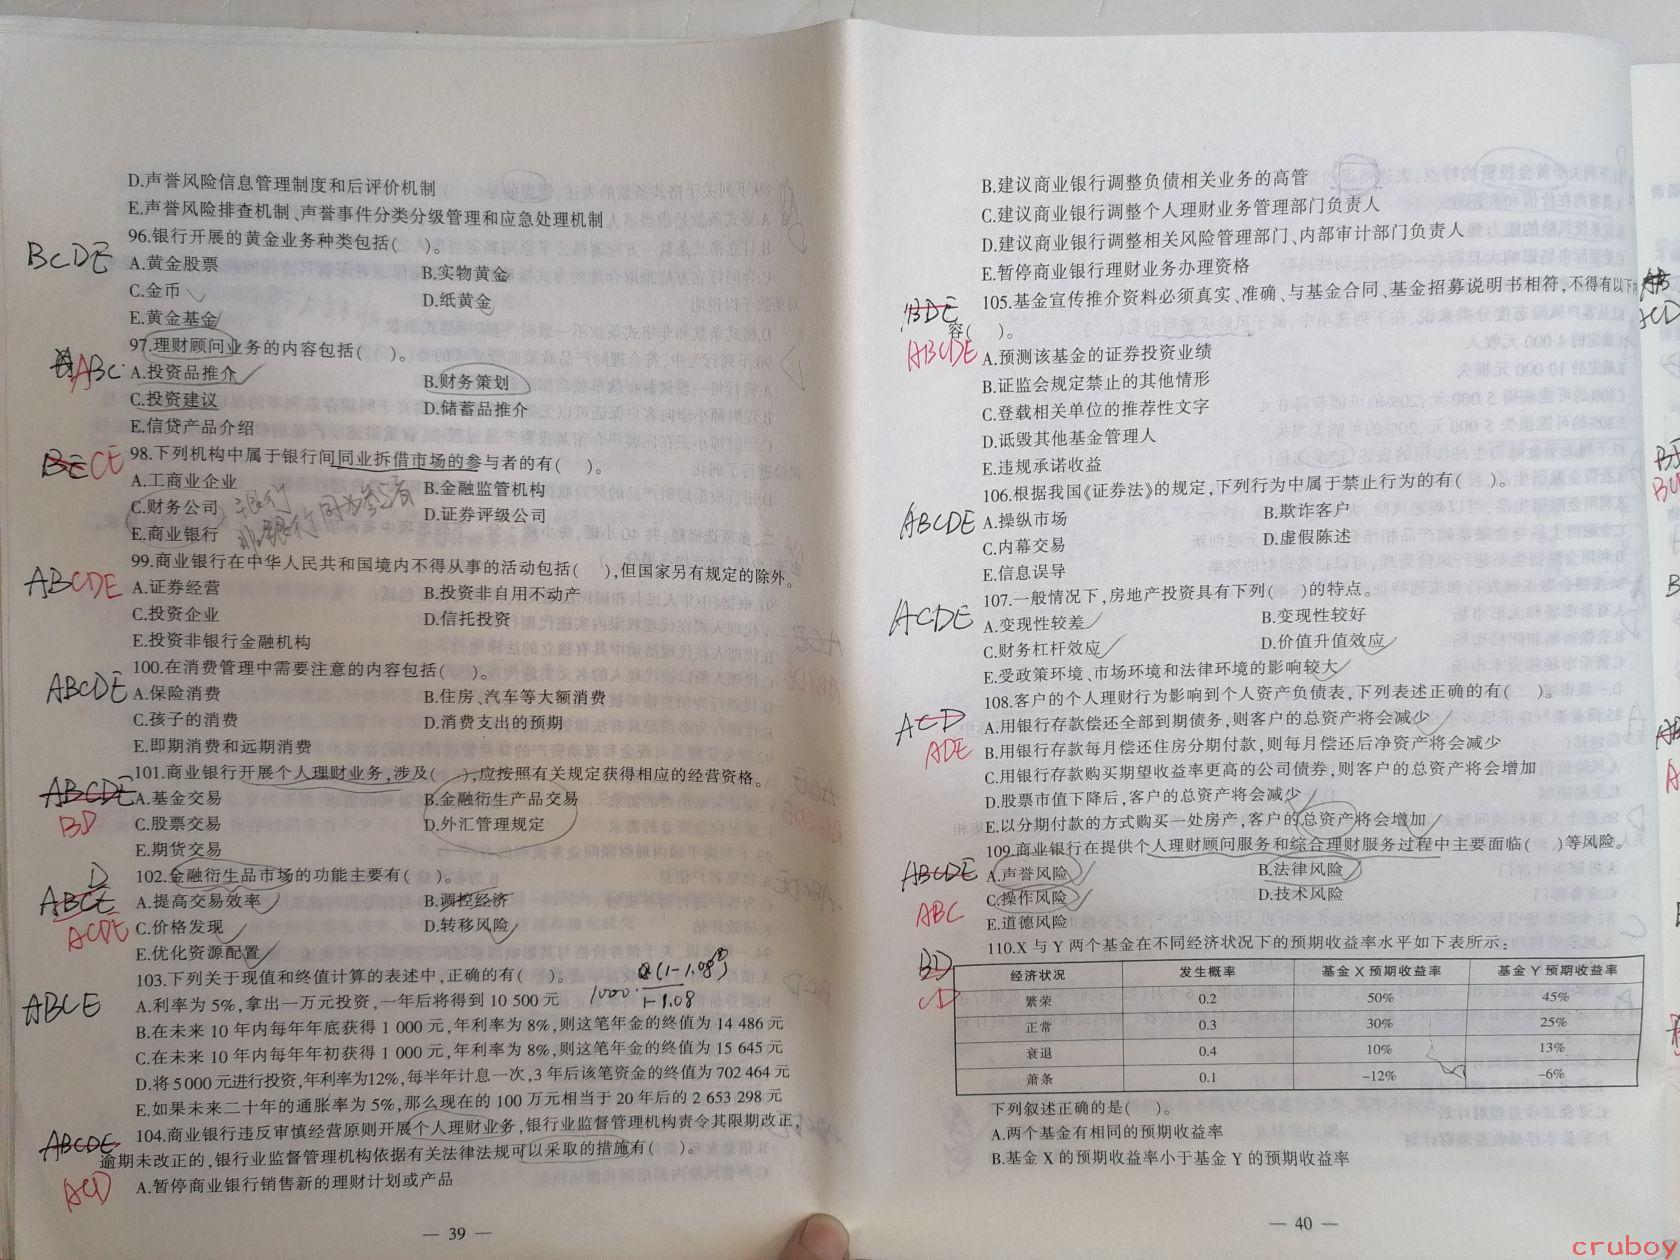 D.声誉风险信息管理制度和后评价机制
E.声誉风险排查机制、声誉事件分类分级管理和应急处理机制
BCDE
96.银行开展的黄金业务种类包括(　　)。
A.黄金股票　B.实物黄金
C.金币　D.纸黄金
E.黄金基金
ABC
97.理财顾问业务的内容包括(　　)。
A.投资品推介　B.财务策划
C.投资建议　D.储蓄品推介
E.信贷产品介绍
BE CE
98.下列机构中属于银行间同业拆借市场的参与者的有(　　)。
A.工商业企业　B.金融监管机构
C.财务公司　D.证券评级公司
E.商业银行
ABCDE
99.商业银行在中华人民共和国境内不得从事的活动包括(　　),但国家另有规定的除外。
A.证券经营　B.投资非自用不动产
C.投资企业　D.信托投资
E.投资非银行金融机构
ABCDE
100.在消费管理中需要注意的内容包括(　　)。
A.保险消费　B.住房、汽车等大额消费
C.孩子的消费　D.消费支出的预期
E.即期消费和远期消费
ABCDE
BD
101.商业银行开展个人理财业务,涉及(　　),应按照有关规定获得相应的经营资格。
A.基金交易　B.金融衍生产品交易
C.股票交易　D.外汇管理规定
E.期货交易
D
ABCE
ACDE
102.金融衍生品市场的功能主要有(　　)。
A.提高交易效率　B.调控经济
C.价格发现　D.转移风险
E.优化资源配置
ABCE
103.下列关于现值和终值计算的表述中,正确的有(　　)。
A.利率为 5%,拿出一万元投资,一年后将得到 10 500 元
B.在未来 10 年内每年年底获得 1 000 元,年利率为 8%,则这笔年金的终值为 14 486 元
C.在未来 10 年内每年年初获得 1 000 元,年利率为 8%,则这笔年金的终值为 15 645 元
D.将 5 000 元进行投资,年利率为12%,每半年计息一次,3 年后该笔资金的终值为 702 464 元
E.如果未来二十年的通胀率为 5%,那么现在的 100 万元相当于 20 年后的 2 653 298 元
ABCDE
ACD
104.商业银行违反审慎经营原则开展个人理财业务,银行业监督管理机构责令其限期改正,
逾期未改正的,银行业监督管理机构依据有关法律法规可以采取的措施有(　　)。
A.暂停商业银行销售新的理财计划或产品
— 39 —
B.建议商业银行调整负债相关业务的高管
C.建议商业银行调整个人理财业务管理部门负责人
D.建议商业银行调整相关风险管理部门、内部审计部门负责人
E.暂停商业银行理财业务办理资格
BDE
ABCDE
105.基金宣传推介资料必须真实、准确、与基金合同、基金招募说明书相符,不得有以下内
容(　　)。
A.预测该基金的证券投资业绩
B.证监会规定禁止的其他情形
C.登载相关单位的推荐性文字
D.诋毁其他基金管理人
E.违规承诺收益
ABCDE
106.根据我国《证券法》的规定,下列行为中属于禁止行为的有(　　)。
A.操纵市场　B.欺诈客户
C.内幕交易　D.虚假陈述
E.信息误导
ACDE
107.一般情况下,房地产投资具有下列(　　)的特点。
A.变现性较差　B.变现性较好
C.财务杠杆效应　D.价值升值效应
E.受政策环境、市场环境和法律环境的影响较大
ACD
ADE
108.客户的个人理财行为影响到个人资产负债表,下列表述正确的有(　　)。
A.用银行存款偿还全部到期债务,则客户的总资产将会减少
B.用银行存款每月偿还住房分期付款,则每月偿还后净资产将会减少
C.用银行存款购买期望收益率更高的公司债券,则客户的总资产将会增加
D.股票市值下降后,客户的总资产将会减少
E.以分期付款的方式购买一处房产,客户的总资产将会增加
ABCDE
ABC
109.商业银行在提供个人理财顾问服务和综合理财服务过程中主要面临(　　)等风险。
A.声誉风险　B.法律风险
C.操作风险　D.技术风险
E.道德风险
BD
CD
110.X 与 Y 两个基金在不同经济状况下的预期收益率水平如下表所示:
经济状况　发生概率　基金 X 预期收益率　基金 Y 预期收益率
繁荣　0.2　50%　45%
正常　0.3　30%　25%
衰退　0.4　10%　13%
萧条　0.1　-12%　-6%
下列叙述正确的是(　　)。
A.两个基金有相同的预期收益率
B.基金 X 的预期收益率小于基金 Y 的预期收益率
— 40 —
cruboy